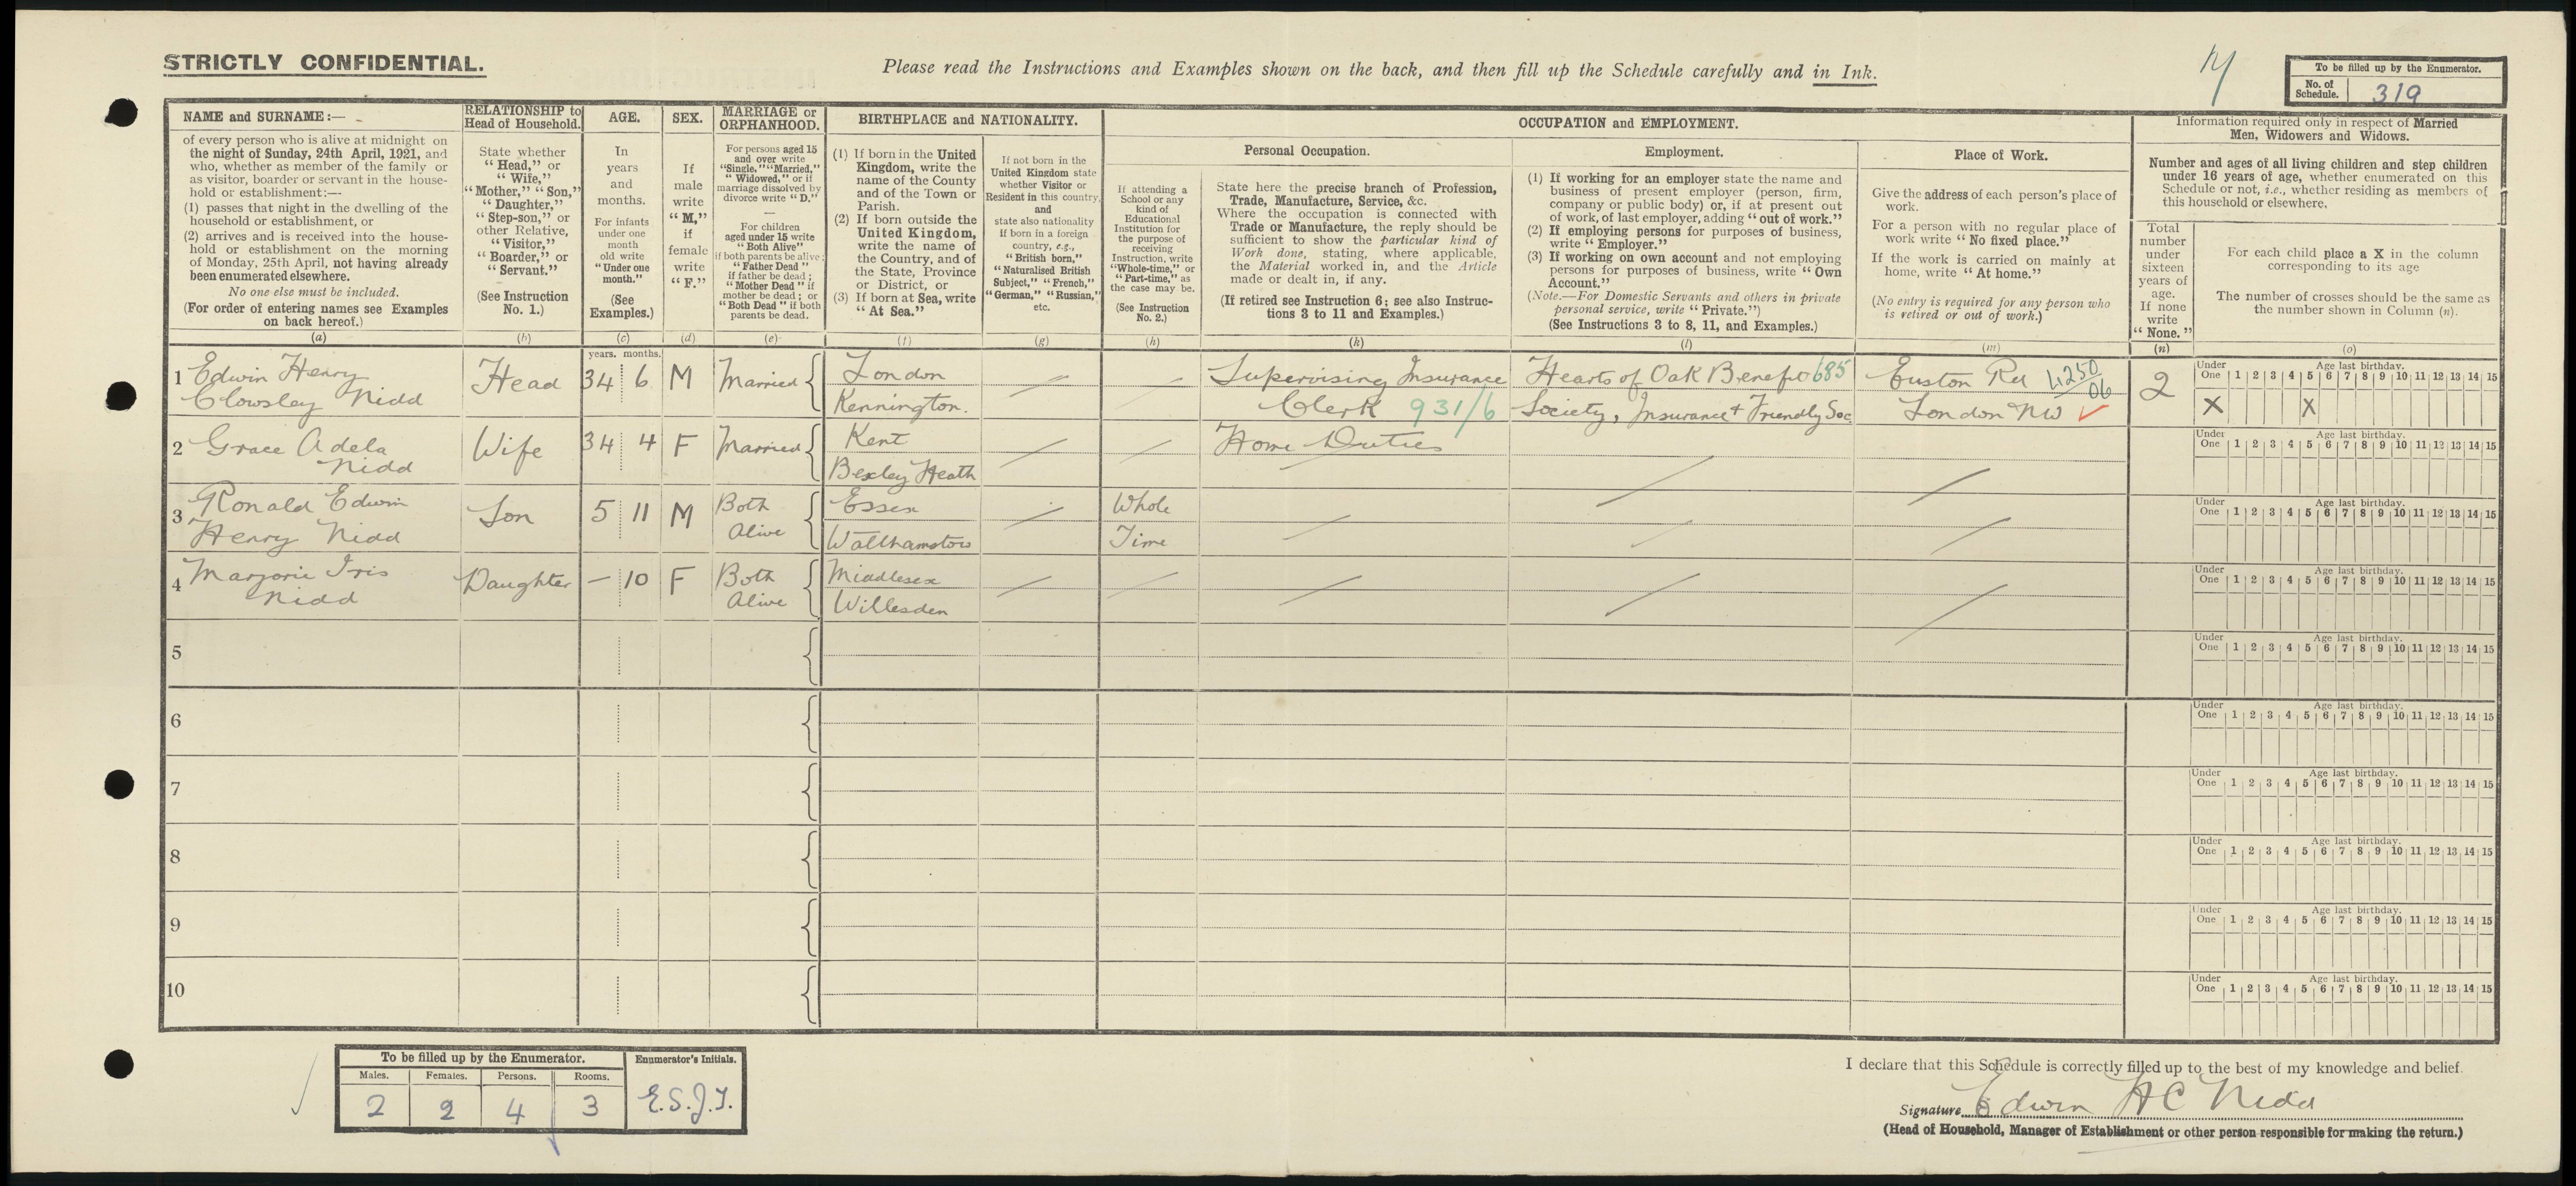 STRICTLY CONFIDENTIAL.
Please read the Instructions and Examples shown on the back, and then fill up the Schedule carefully and in Ink.
To be filled up by the Enumerator.
No. of Schedule. 319
NAME and SURNAME:—
of every person who is alive at midnight on
the night of Sunday, 24th April, 1921, and
who, whether as member of the family or
as visitor, boarder or servant in the house-
hold or establishment:—
(1) passes that night in the dwelling of the
household or establishment, or
(2) arrives and is received into the house-
hold or establishment on the morning
of Monday, 25th April, not having already
been enumerated elsewhere.
No one else must be included.
(For order of entering names see Examples
on back hereof.)
(a)
RELATIONSHIP to
Head of Household.
State whether
"Head," or
"Wife,"
"Mother," "Son,"
"Daughter,"
"Step-son," or
other Relative,
"Visitor,"
"Boarder," or
"Servant."
(See Instruction
No. 1.)
(b)
AGE.
In
years
and
months.
For infants
under one
month
old write
"Under one
month."
(See
Examples.)
(c)
SEX.
If
male
write
"M,"
if
female
write
"F."
(d)
MARRIAGE or
ORPHANHOOD.
For persons aged 15
and over write
"Single," "Married,"
"Widowed," or if
marriage dissolved by
divorce write "D."
—
For children
aged under 15 write
"Both Alive"
if both parents be alive;
"Father Dead"
if father be dead;
"Mother Dead" if
mother be dead; or
"Both Dead" if both
parents be dead.
(e)
BIRTHPLACE and NATIONALITY.
(1) If born in the United
Kingdom, write the
name of the County
and of the Town or
Parish.
(2) If born outside the
United Kingdom,
write the name of
the Country, and of
the State, Province
or District, or
(3) If born at Sea, write
"At Sea."
(f)
If not born in the
United Kingdom state
whether Visitor or
Resident in this country,
and
state also nationality
if born in a foreign
country, e.g.,
"British born,"
"Naturalised British
Subject," "French,"
"German," "Russian,"
etc.
(g)
OCCUPATION and EMPLOYMENT.
If attending a
School or any
kind of
Educational
Institution for
the purpose of
receiving
Instruction, write
"Whole-time," or
"Part-time," as
the case may be.
(See Instruction
No. 2.)
(h)
Personal Occupation.
State here the precise branch of Profession,
Trade, Manufacture, Service, &c.
Where the occupation is connected with
Trade or Manufacture, the reply should be
sufficient to show the particular kind of
Work done, stating, where applicable,
the Material worked in, and the Article
made or dealt in, if any.
(If retired see Instruction 6; see also Instruc-
tions 3 to 11 and Examples.)
(k)
Employment.
(1) If working for an employer state the name and
business of present employer (person, firm,
company or public body) or, if at present out
of work, of last employer, adding "out of work."
(2) If employing persons for purposes of business,
write "Employer."
(3) If working on own account and not employing
persons for purposes of business, write "Own
Account."
(Note.—For Domestic Servants and others in private
personal service, write "Private.")
(See Instructions 3 to 8, 11, and Examples.)
(l)
Place of Work.
Give the address of each person's place of
work.
For a person with no regular place of
work write "No fixed place."
If the work is carried on mainly at
home, write "At home."
(No entry is required for any person who
is retired or out of work.)
(m)
Information required only in respect of Married
Men, Widowers and Widows.
Number and ages of all living children and step children
under 16 years of age, whether enumerated on this
Schedule or not, i.e., whether residing as members of
this household or elsewhere.
Total
number
under
sixteen
years of
age.
If none
write
"None."
(n)
For each child place a X in the column
corresponding to its age
The number of crosses should be the same as
the number shown in Column (n).
(o)
years. months.
1 Edwin Henry Head 34 6 M Married London Supervising Insurance Hearts of Oak Benefit 685 Euston Rd 4250/06 2
Clowsley Nidd Kennington. Clerk 931/6 Society, Insurance & Friendly Soc London NW
Under One 1 2 3 4 5 6 7 8 9 10 11 12 13 14 15
Age last birthday.
X X
2 Grace Adela Wife 34 4 F Married Kent Home Duties
Nidd Bexley Heath
Under One 1 2 3 4 5 6 7 8 9 10 11 12 13 14 15
Age last birthday.
3 Ronald Edwin Son 5 11 M Both Essex Whole
Henry Nidd Alive Walthamstow Time
Under One 1 2 3 4 5 6 7 8 9 10 11 12 13 14 15
Age last birthday.
4 Marjorie Iris Daughter — 10 F Both Middlesex
Nidd Alive Willesden
Under One 1 2 3 4 5 6 7 8 9 10 11 12 13 14 15
Age last birthday.
5
Under One 1 2 3 4 5 6 7 8 9 10 11 12 13 14 15
Age last birthday.
6
Under One 1 2 3 4 5 6 7 8 9 10 11 12 13 14 15
Age last birthday.
7
Under One 1 2 3 4 5 6 7 8 9 10 11 12 13 14 15
Age last birthday.
8
Under One 1 2 3 4 5 6 7 8 9 10 11 12 13 14 15
Age last birthday.
9
Under One 1 2 3 4 5 6 7 8 9 10 11 12 13 14 15
Age last birthday.
10
Under One 1 2 3 4 5 6 7 8 9 10 11 12 13 14 15
Age last birthday.
To be filled up by the Enumerator.
Males. Females. Persons. Rooms.
2 2 4 3
Enumerator's Initials.
E.S.J.T.
I declare that this Schedule is correctly filled up to the best of my knowledge and belief.
Signature Edwin HC Nidd
(Head of Household, Manager of Establishment or other person responsible for making the return.)